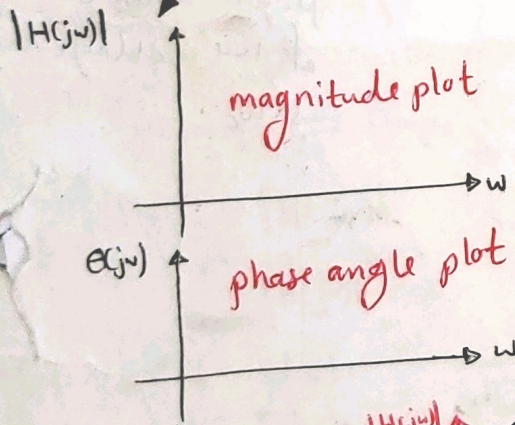 |H(jω)|
magnitude plot
ω
θ(jω)
phase angle plot
ω
|H(jω)|